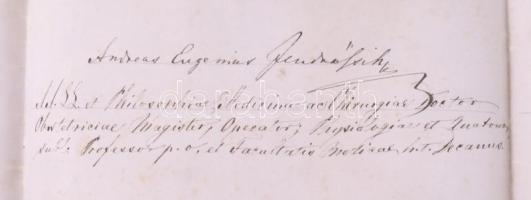 Andreas Eugenius Jendrássik
AA. LL. et Philosophiae, Medicinae ac Chirurgiae Doctor
Obstetriciae Magister, Operator, Physiologiae et
Professor p. o. et Facultatis Medicae int. Decanus